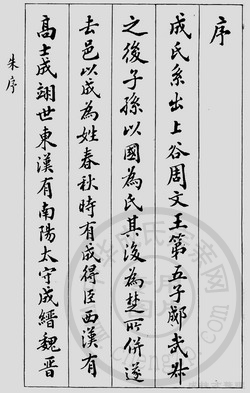 序
成氏系出上谷周文王第五子郕武叔
之後子孫以國為氏其後為楚所併遂
去邑以成為姓春秋時有成得臣西漢有
高士成翊世東漢有南陽太守成縉魏晋
朱序